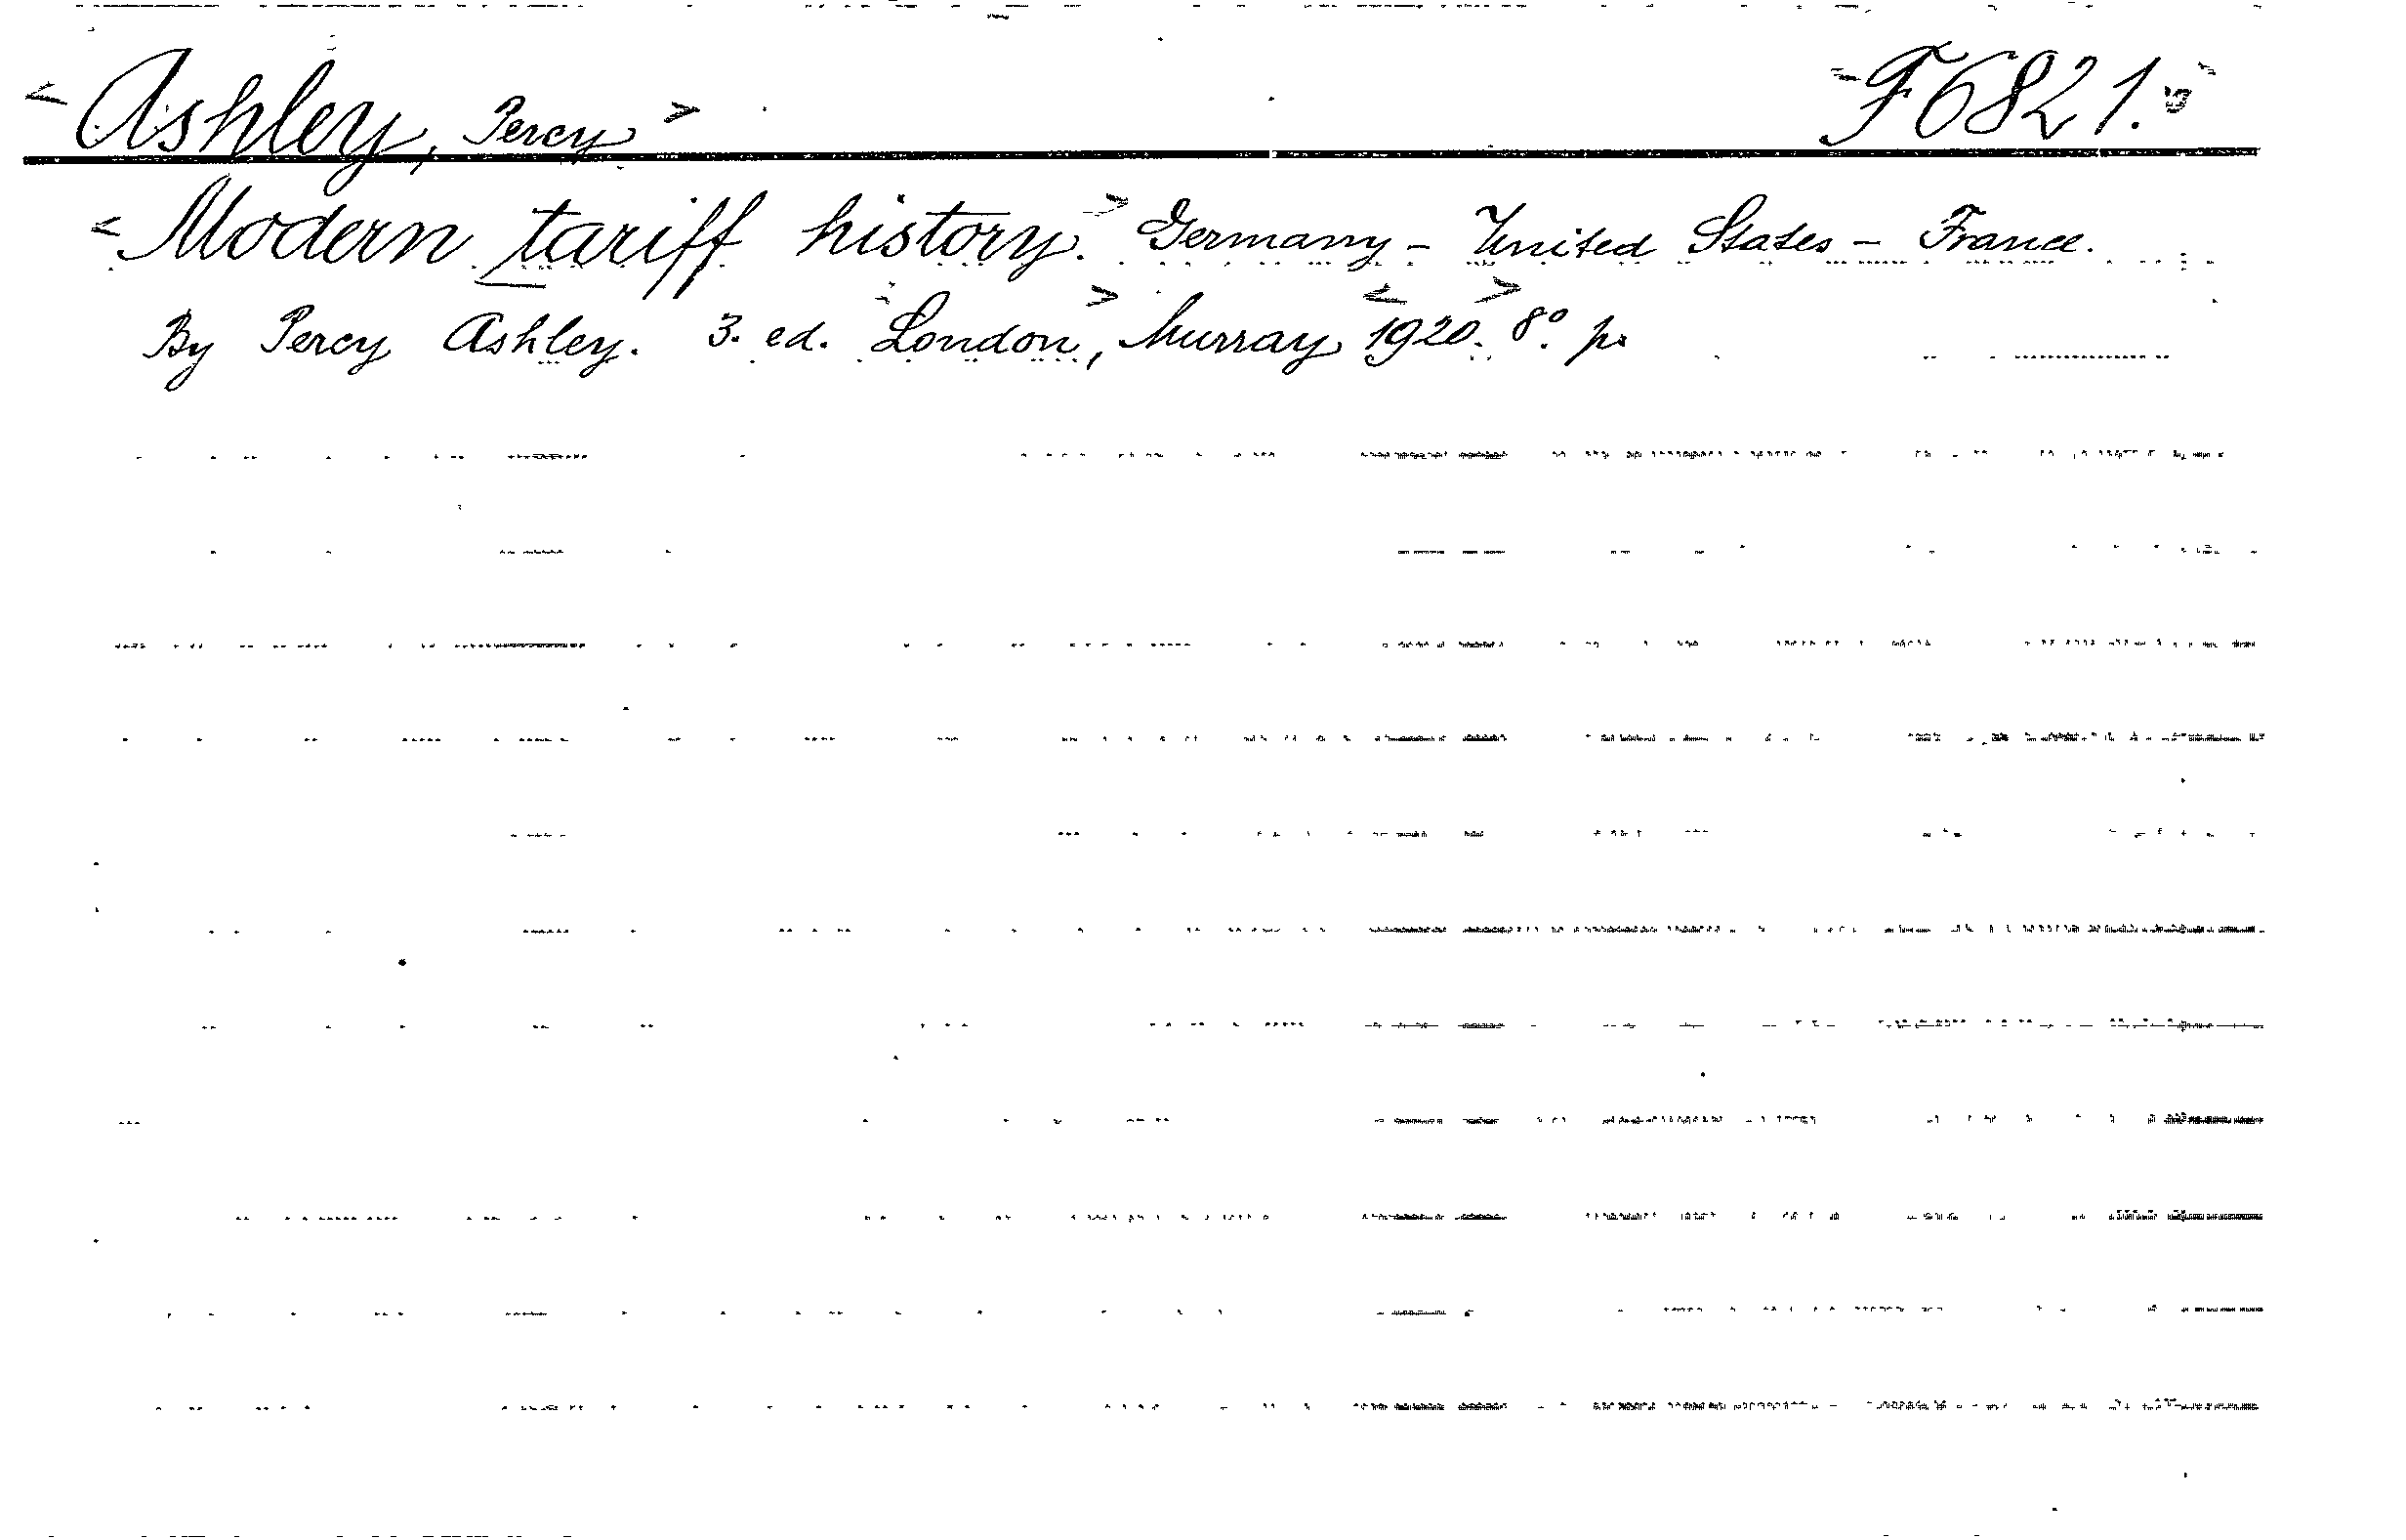 <Ashley, Percy> F6821.
<Modern tariff history.> Germany - United States - France.
By Percy Ashley. 3. ed. <London>, Murray <1920.> 8°. p.